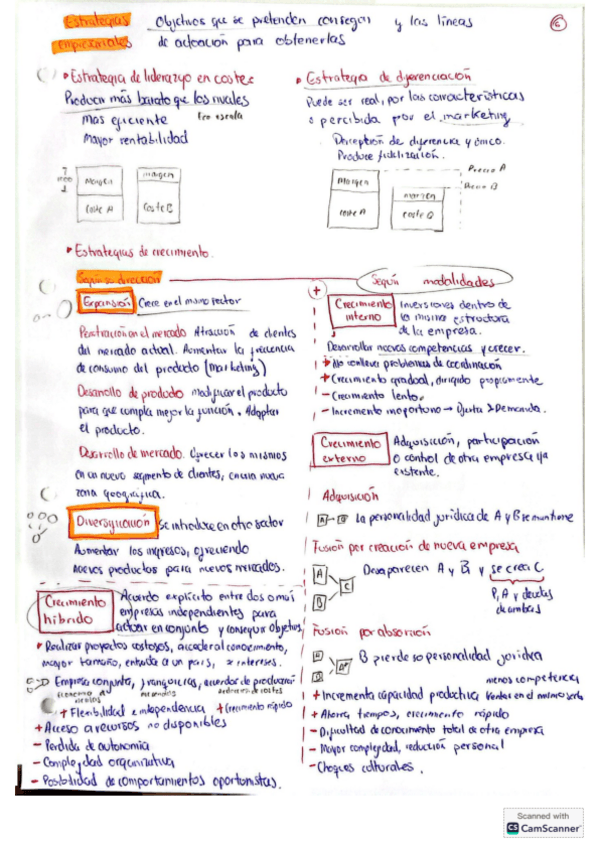 Estrategias empresariales
Objetivos que se pretenden conseguir y las líneas
de actuación para obtenerlas
6
• Estrategia de liderazgo en costes
Producir más barato que los rivales
Mas eficiente Eco escala
Mayor rentabilidad
Margen
Coste A
margen
Coste
• Estrategia de diferenciación
Puede ser real, por las características
o percibida por el marketing
Percepción de diferencia y único.
Produce fidelización.
Margen
Coste A
margen
Coste
Precio A
Precio B
• Estrategias de crecimiento.
Según su dirección
Expansión Crece en el mismo sector
Penetración en el mercado Atracción de clientes
del mercado actual. Aumentar la frecuencia
de consumo del producto (marketing)
Desarrollo de producto modificar el producto
para que cumpla mejor la función. Adaptar
el producto.
Desarrollo de mercado. Ofrecer los mismos
en un nuevo segmento de clientes, en una nueva
zona geográfica.
Diversificación Se introduce en otro sector
Aumentar los ingresos, ofreciendo
nuevos productos para nuevos mercados.
Crecimiento híbrido
Acuerdo explícito entre dos o más
empresas independientes para
actuar en conjunto y conseguir objetivos
• Realizar proyectos costosos, acceder al conocimiento,
mayor tamaño, entrada a un país, x intereses.
Empresa conjunta, franquicias, acuerdos de producción
+ Flexibilidad e independencia + Crecimiento rápido
+ Acceso a recursos no disponibles
- Perdida de autonomía
- Complejidad organizativa
- Posibilidad de comportamientos oportunistas.
Según modalidades
+
Crecimiento interno
Inversiones dentro de
la misma estructura
de la empresa.
Desarrollar nuevas competencias y crecer.
+ No conlleva problemas de coordinación
+ Crecimiento gradual, dirigido propiamente
- Crecimiento lento.
- Incremento inoportuno → Oferta > Demanda.
Crecimiento externo
Adquisición, participación
o control de otra empresa ya
existente.
Adquisición
A - B La personalidad jurídica de A y B se mantiene
Fusion por creación de nueva empresa
A
B
C
Desaparecen A y B y se crea C
P, A y deudas
de ambas
Fusion por absorción
B
A+
B pierde su personalidad jurídica
menos competencia
+ Incrementa capacidad productiva
+ Ahorra tiempos, crecimiento rápido
- Dificultad de conocimiento total de otra empresa
- Mayor complejidad, reducción personal
- Choques culturales.
Scanned with
CS CamScanner